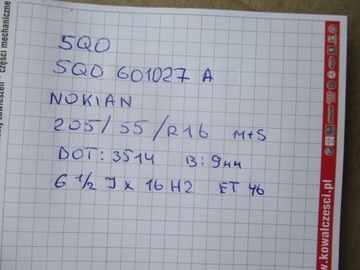 5Q0
5Q0 601027 A
NOKIAN
205/55/R16 M+S
DOT: 3514 B: 9mm
6 1/2 J x 16 H2 ET 46
www.kowalczesci.pl
części mechaniczne